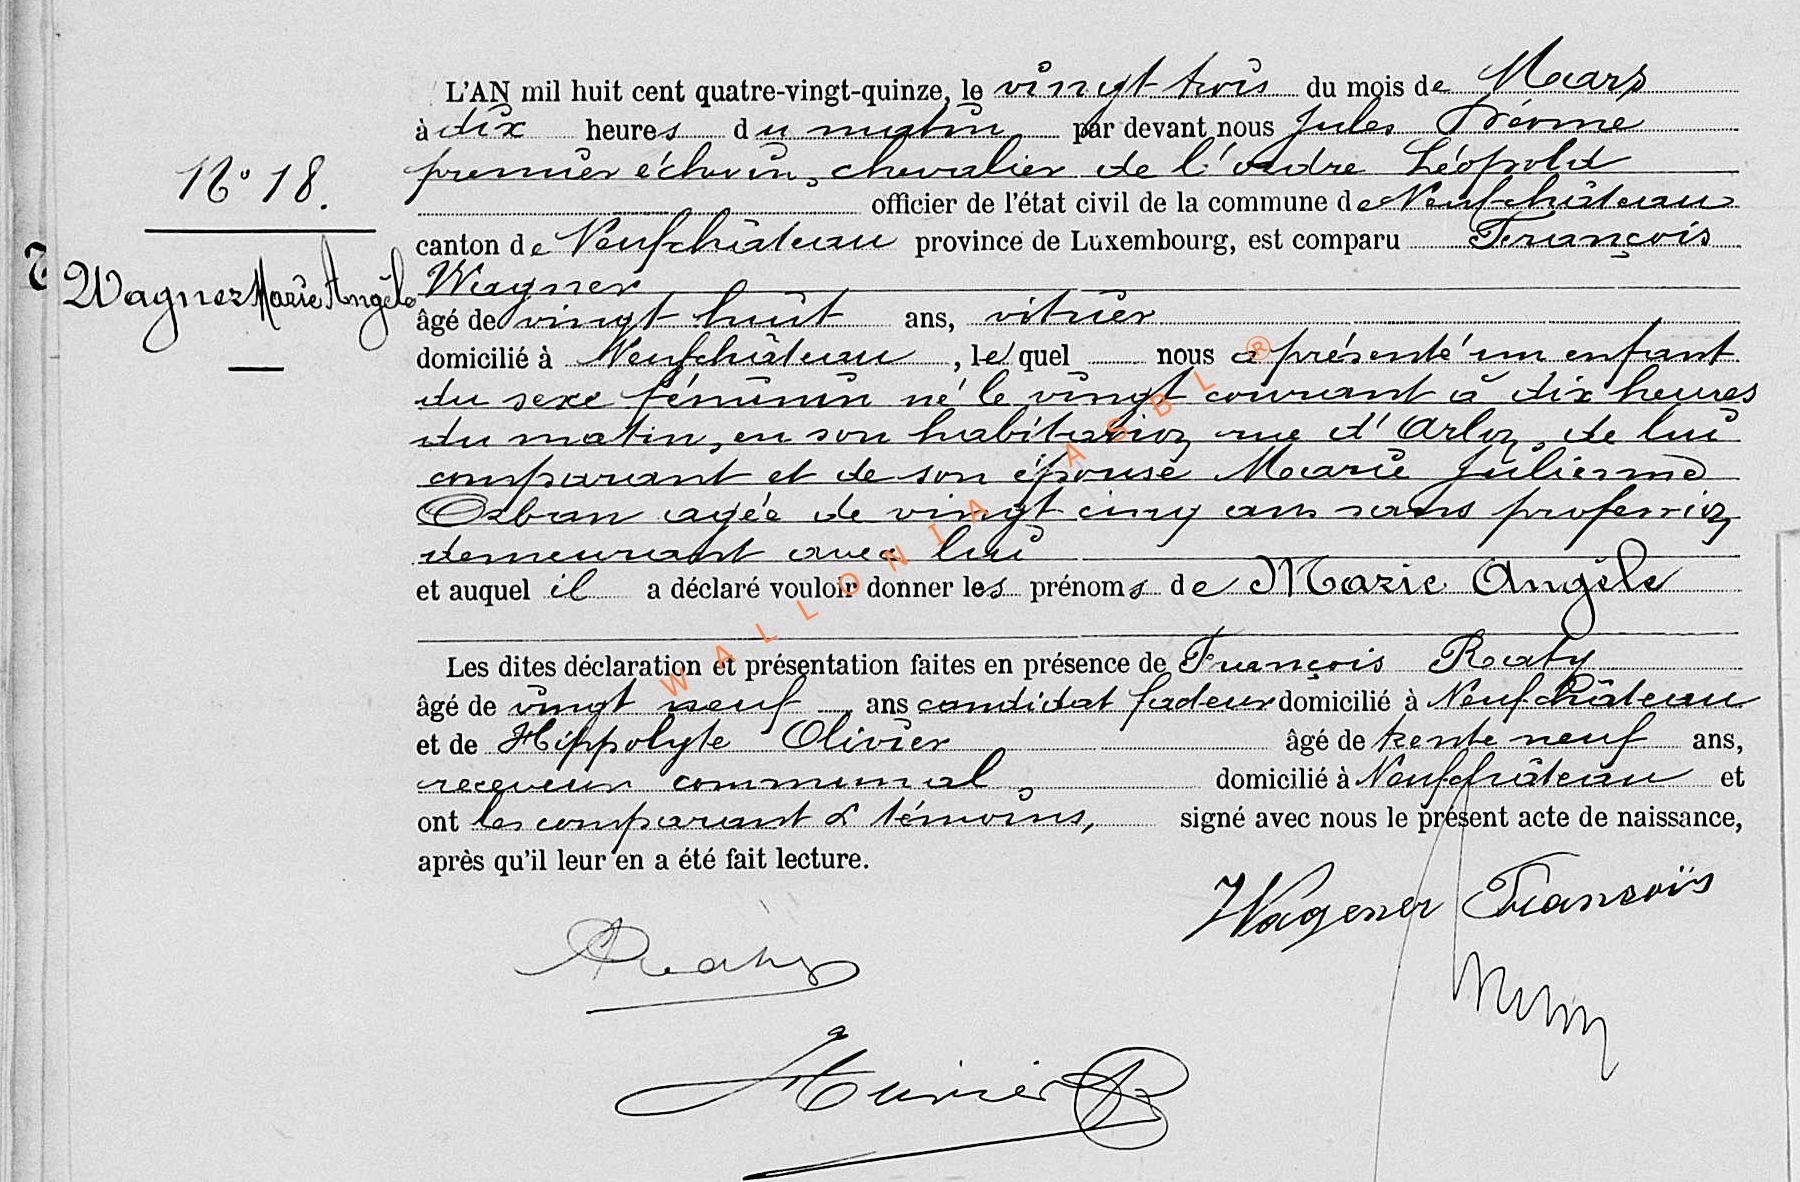 L'AN mil huit cent quatre-vingt-quinze, le vingt trois du mois de Mars
à dix heures du matin par devant nous Jules
premier échevin, chevalier de l'ordre Léopold
N° 18.
officier de l'état civil de la commune de Neufchâteau
canton de Neufchâteau province de Luxembourg, est comparu François
Wagner Marie Angèle
Wagner
âgé de vingt huit ans, vitrier
domicilié à Neufchâteau, lequel nous a présenté un enfant
du sexe féminin né le vingt courant à dix heures
du matin, en son habitation rue d'Arlon, de lui
comparant et de son épouse Marie Julienne
Orban agée de vingt cinq ans sans profession
demeurant avec lui
et auquel il a déclaré vouloir donner les prénoms de Marie Angèle
Les dites déclaration et présentation faites en présence de François Roaty
âgé de vingt neuf ans candidat facteur domicilié à Neufchâteau
et de Hippolyte Olivier âgé de trente neuf ans,
receveur communal, domicilié à Neufchâteau et
ont les comparant & témoins, signé avec nous le présent acte de naissance,
après qu'il leur en a été fait lecture.
Wagener François
WALLONIA ASBL ®